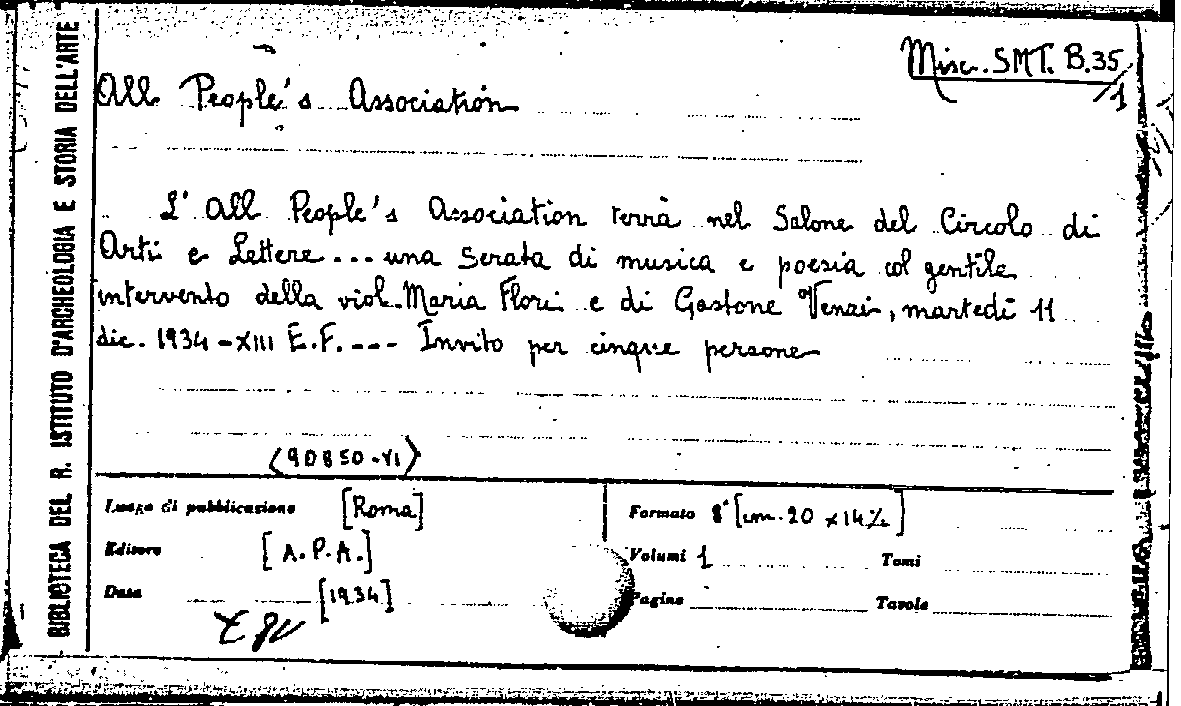 BIBLIOTECA DEL R. ISTITUTO D'ARCHEOLOGIA E STORIA DELL'ARTE
Misc. SMT. B.35
/1
All People's Association
L'All People's Association terrà nel Salone del Circolo di
Arti e Lettere... una Serata di musica e poesia col gentile
intervento della viol. Maria Flori e di Gastone Venzi, martedì 11
dic. 1934-XIII E.F. --- Invito per cinque persone
(90850-VI)
Luogo di pubblicazione [Roma]
Editore [A.P.A.]
Data [1934]
Formato 8° [cm. 20 x 14½]
Volumi 1 Tomi
Pagine Tavole